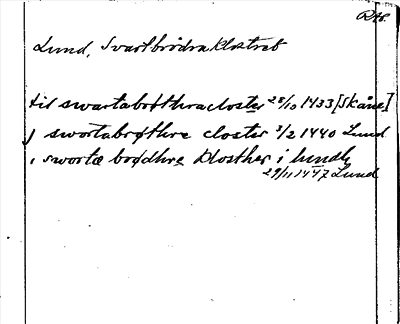 RAp.
Lund, Svartbrödraklostret
til swartabrøthracloster 28/10 1433 [Skåne]
j swortabrøthre closter 3/2 1440 Lund
i swortæ brødhre klosther i lundh
29/11 1447 Lund